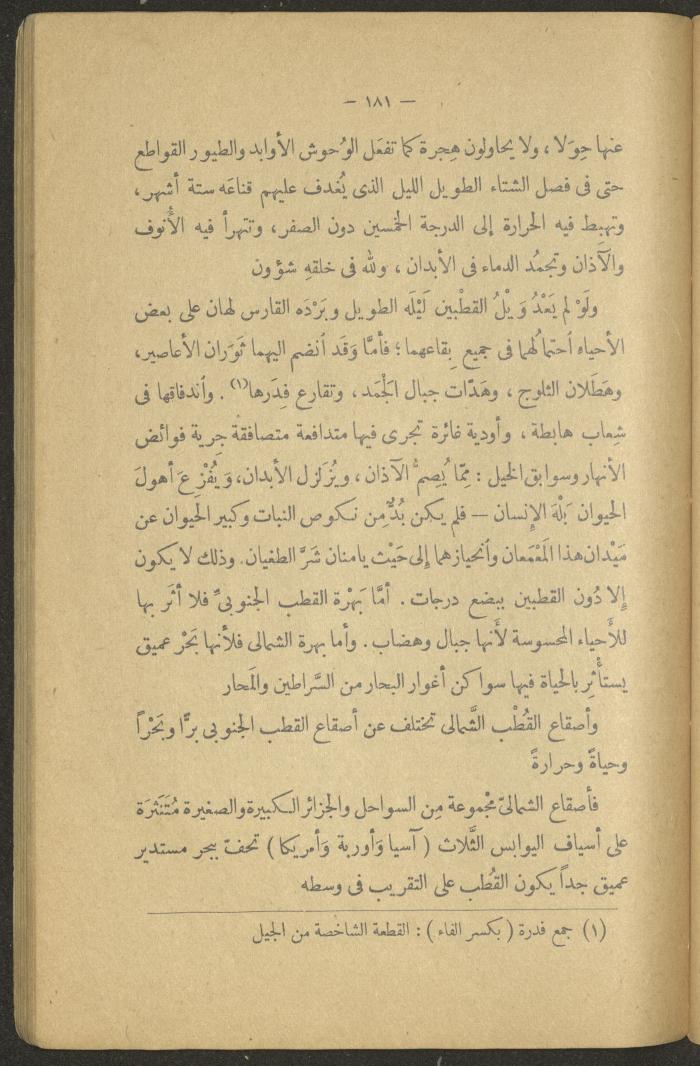 — ١٨١ —
عنها حِوَلا ، ولا يحاولون هِجرة كما تفعَل الوُحوش الأوابد والطيور القواطع
حتى فى فصل الشتاء الطويل الليل الذى يُغدف عليهم قناعَه ستة أشهر ،
وتهبِط فيه الحرارة إلى الدرجة الخمسين دون الصفر ، وتتهرأ فيه الأُنوف
والآذان وتجمُد الدماء فى الأبدان ، ولله فى خلقهِ شؤون
ولَوْ لم يَعْدُ وَيْلُ القطبين لَيْلَه الطويل وبَرْدَه القارس لهان على بعض
الأحياء اُحتمالُهما فى جميع بِقاعهما ؛ فأمَّا وَقَد اُنضم اليهما ثَوَران الأعاصير ،
وهَطَلان الثلوج ، وهَدّات جبال الجَمْد ، وتقارع فِدَرها (١) . واُندفاقها فى
شِعاب هابطة ، وأودية غائرة تجرى فيها متدافعة متصافقة جِرية فوائض
الأنهار وسوابق الخيل : مِمّا يُصِمُّ الآذان ، ويُزَلزل الأبدان، وَيُفْزِعَ أهولَ
الحيوان بَلْهَ الإنسان — فلم يكن بُدٌّ مِن نكوص النبات وكبير الحيوان عن
مَيْدان هذا المَعْمَعان واُنحيازهما إلى حَيْث يامنان شَرَّ الطغيان. وذلك لا يكون
إلا دُون القطبين ببضع درجات . أمَّا بَهْرة القطب الجنوبىّ فلا أثَر بها
للأحياء المحسوسة لأَنها جبال وهضاب . وأما بهرة الشمالى فلأنها بَحْر عميق
يستأْثِر بالحياة فيها سواكن أغوار البحار من السَّراطين والمَحار
وأصقاع القُطْب الشَّمالى تختلف عن أصقاع القطب الجنوبى برًّا وبَحْراً
وحياةً وحرارةً
فأصقاع الشمالىّ مجْموعة مِن السواحل والجزائر الكبيرة والصغيرة مُتَنَثرَة
على أسياف اليوابس الثَّلاث ( آسيا وَأوربة وَأمريكا ) تحفّ ببحر مستدير
عميق جداً يكون القُطب على التقريب فى وسطه
(١) جمع فدرة ( بكسر الفاء ) : القطعة الشاخصة من الجبل